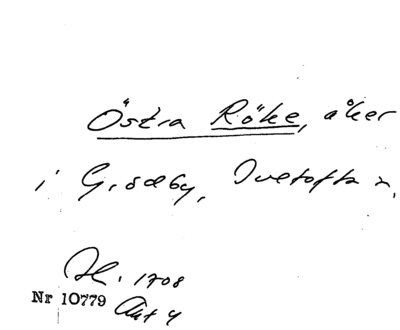 Östra Röke, åker
i Grödby, Ivetofta n.
H. 1708
Nr 10779 Akt 4